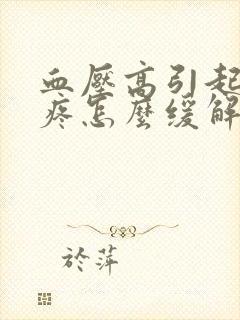 血壓高引起
疼怎麼緩解
於萍